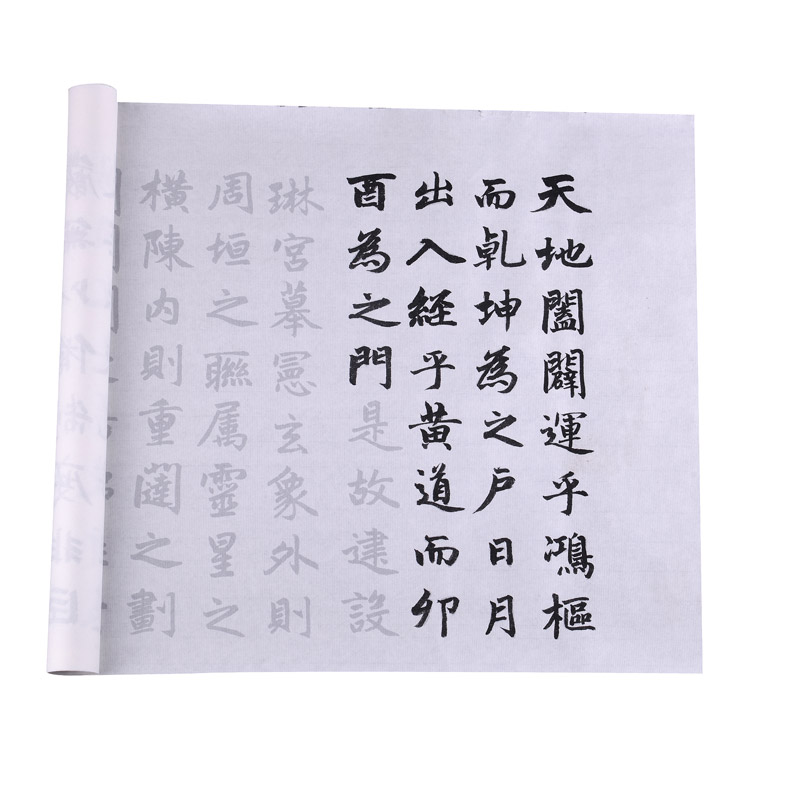 天地闔闢運乎鴻樞
而乹坤為之户日月
出入經乎黄道而卯
酉為之門是故建設
琳宮摹憲玄象外則
周垣之聯属靈星之
橫陳内則重闥之劃